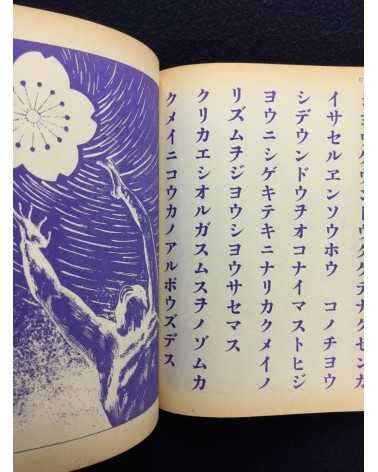 イサセルエンソウホウ　コノチヨウ
シデウンドウヲオコナイマストヒジ
ヨウニシゲキテキニナリカクメイノ
リズムヲジヨウシヨウサセマス
クリカエシオルガスムスヲノゾムカ
クメイニコウカノアルポウズデス